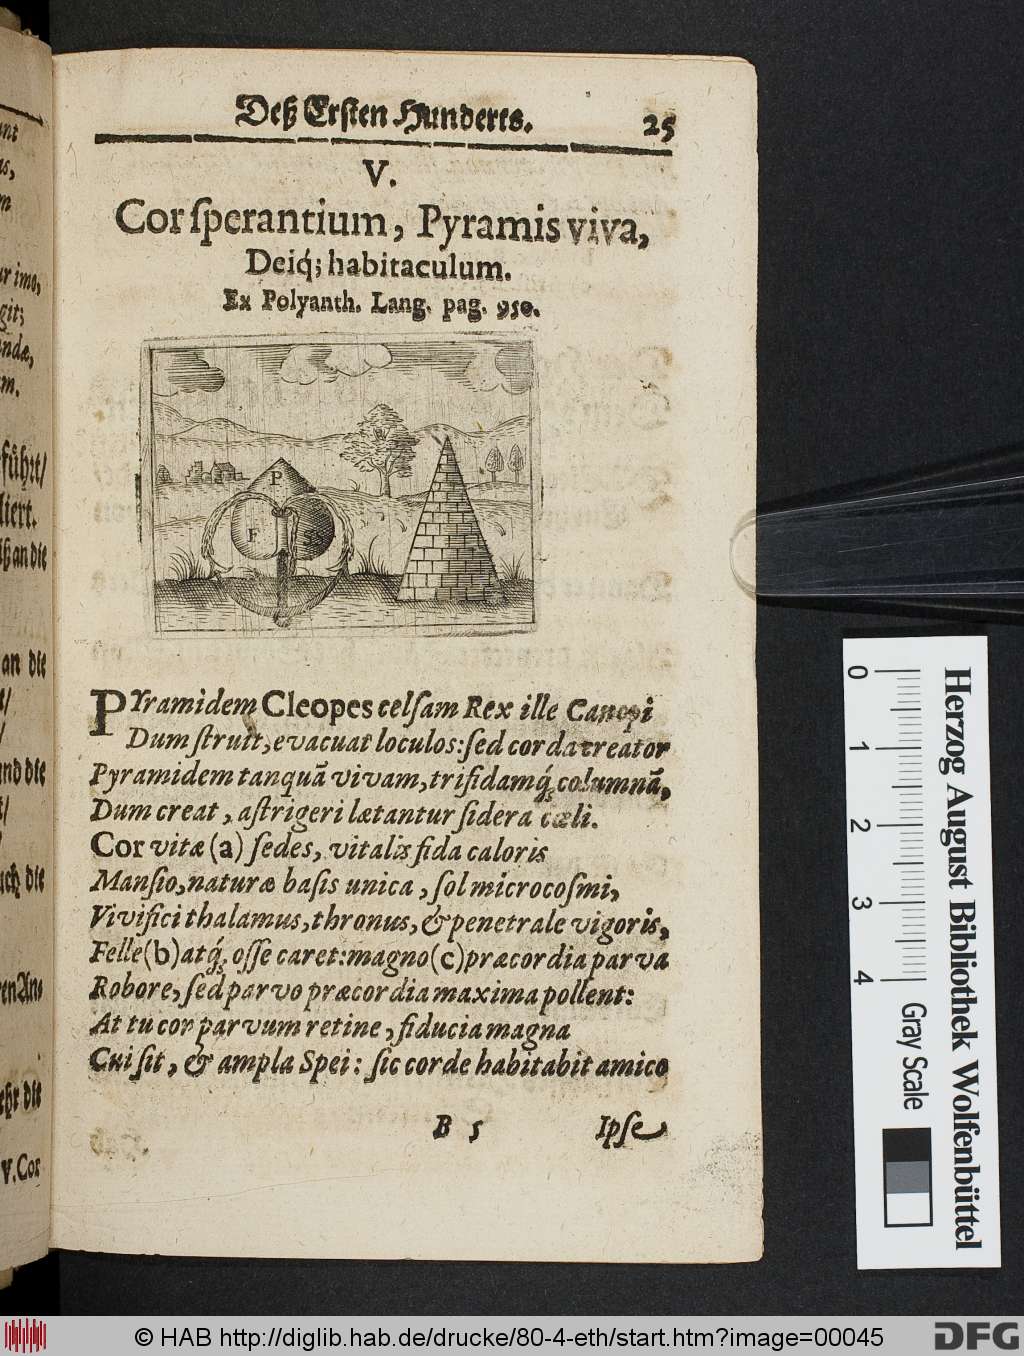 Deß Ersten Hunderts. 25
V.
Cor ſperantium, Pyramis viva,
Deiq́; habitaculum.
Ex Polyanth. Lang. pag. 950.
P
F
PYramidem Cleopes celſam Rex ille Canopi
Dum ſtruit, evacuat loculos: ſed corda creator
Pyramidem tanquā vivam, trifidamq́; columnā,
Dum creat, aſtrigeri lætantur ſidera cœli.
Cor vitæ (a) ſedes, vitalis fida caloris
Manſio, naturæ baſis unica, ſol microcoſmi,
Vivifici thalamus, thronus, & penetrale vigoris,
Felle (b) atq́; oſſe caret: magno (c) præcordia parva
Robore, ſed parvo præcordia maxima pollent:
At tu cor parvum retine, fiducia magna
Cui ſit, & ampla Spei: ſic corde habitabit amico
B 5 Ipſe
ur imo,
git;
andæ,
führt/
liert.
an die
und die
uch die
V. Cor
0 1 2 3 4
Herzog August Bibliothek Wolfenbüttel
Gray Scale
© HAB http://diglib.hab.de/drucke/80-4-eth/start.htm?image=00045
DFG